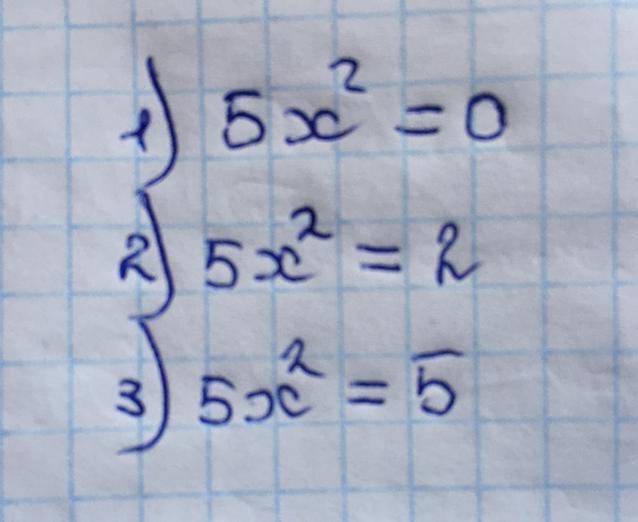 1) 5x² = 0
2) 5x² = 2
3) 5x² = 5